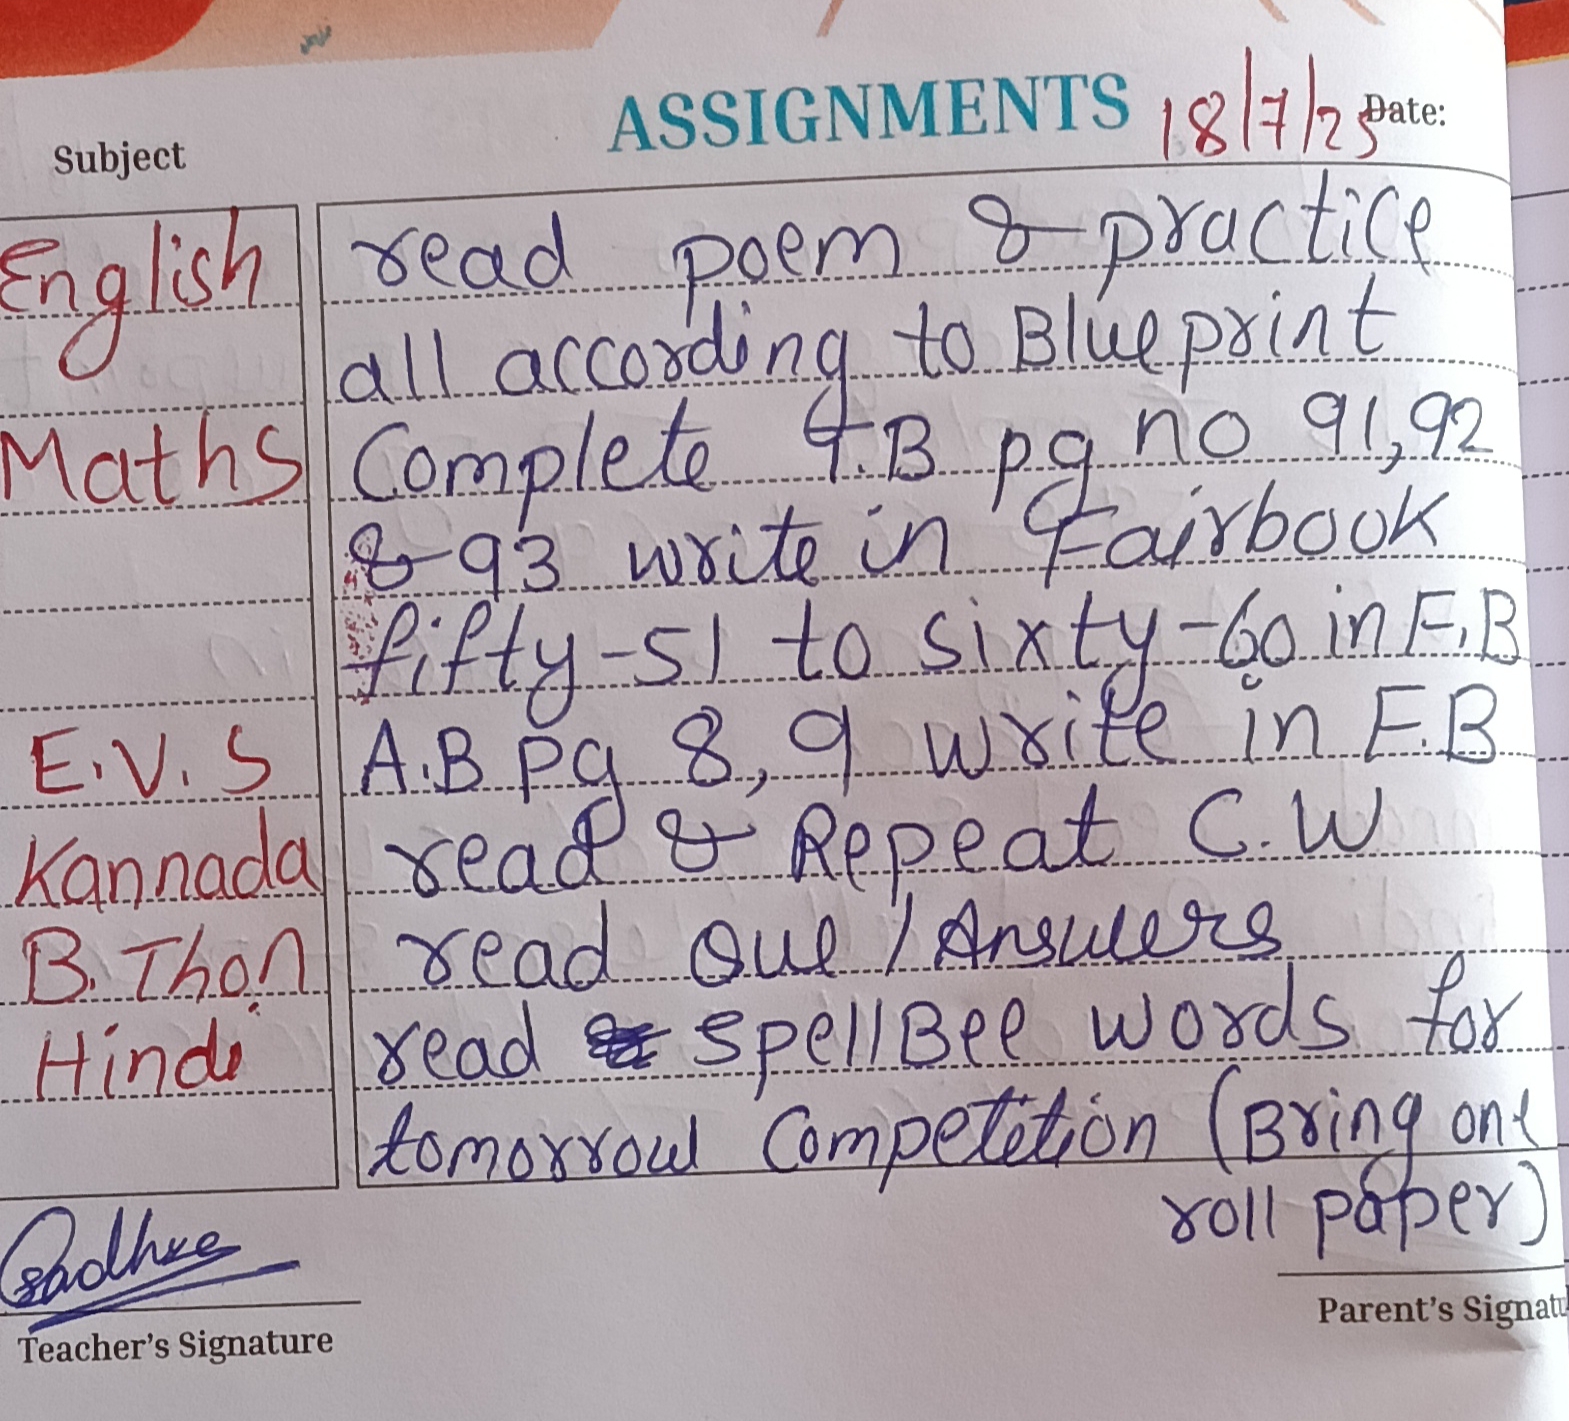 ASSIGNMENTS 18/7/25 Date:
Subject
English read poem & practice
all according to Blueprint
Maths Complete T.B pg no 91,92
& 93 write in Fairbook
fifty-51 to sixty-60 in F.B
E.V.S A.B pg 8, 9 write in F.B
Kannada read & Repeat C.W
B. Thon read Que / Answers
Hindi read SpellBee words for
tomorrow Competetion (Bring one
roll paper)
Teacher's Signature
Parent's Signatu